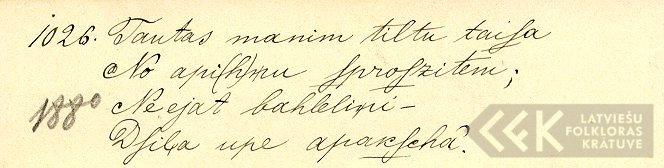 1026. Tautas manim tiltu taiſa
No api(h)ņu ſproſzitem;
1880 Ne ejat bahleliņi –
Dſiļa upe apakſchâ.
LATVIEŠU
FOLKLORAS
KRĀTUVE